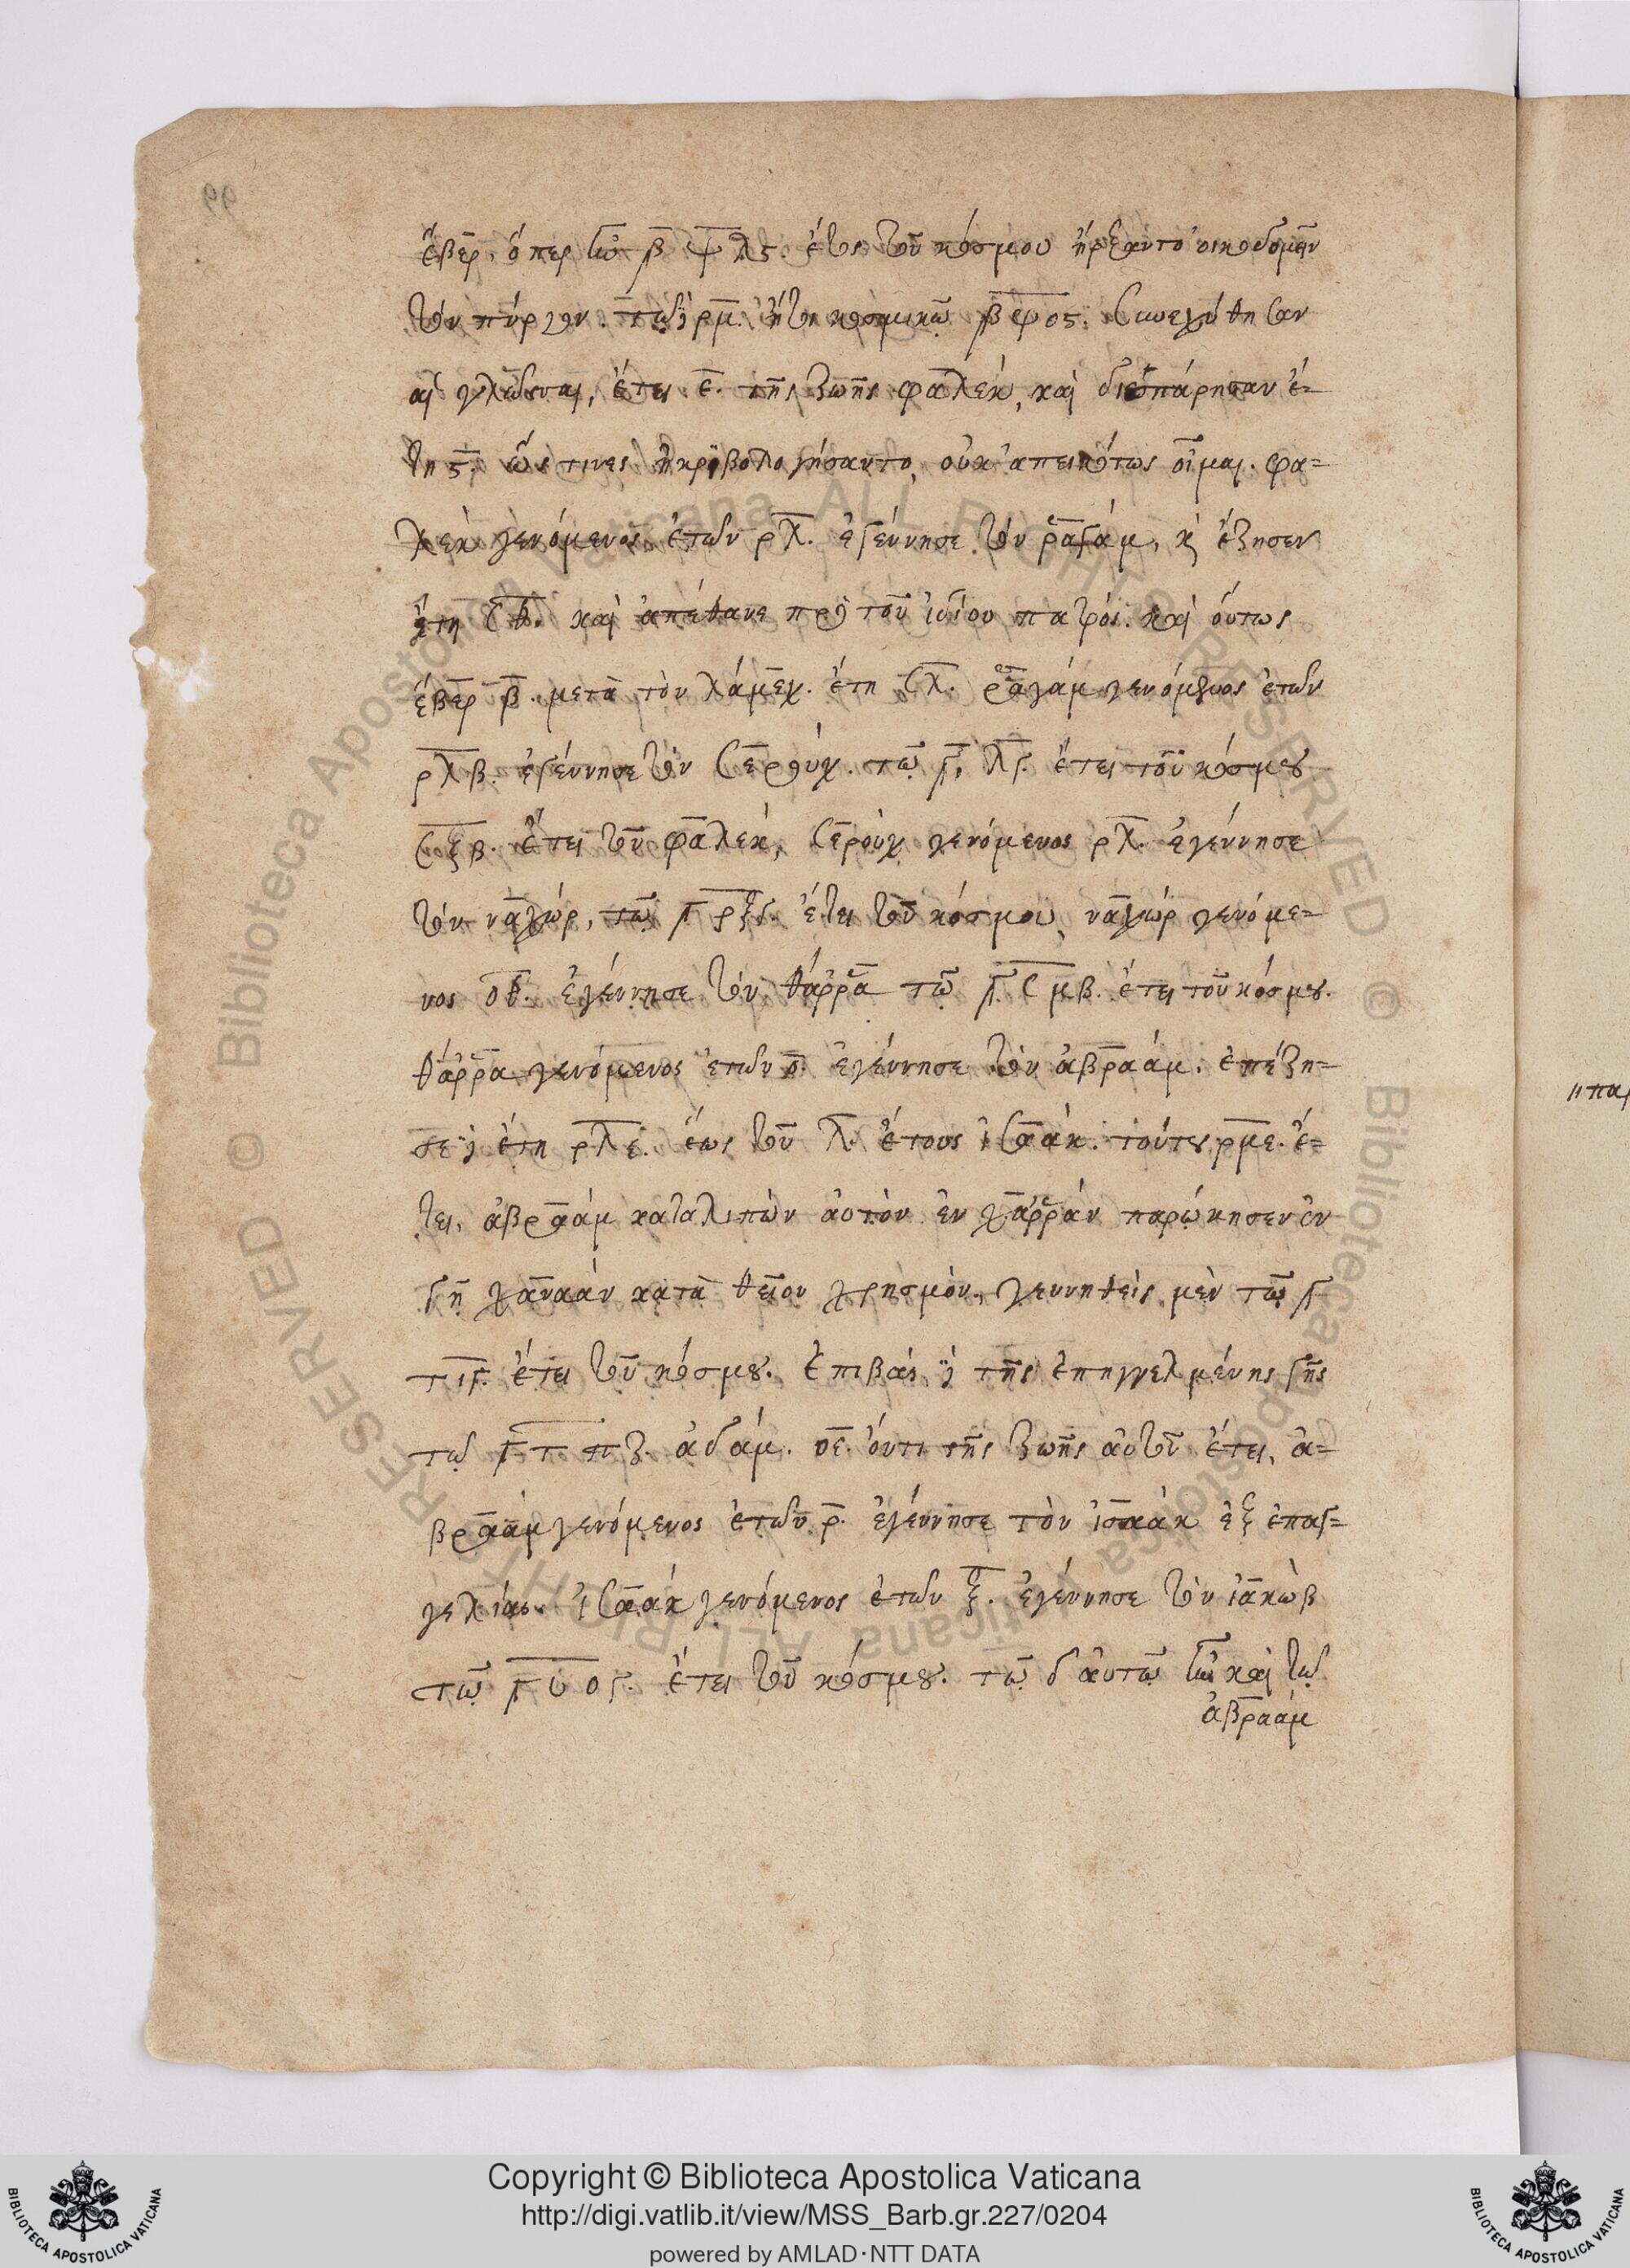 ἔβερ, ὅπερ τῷ β ψλϛ. ἔτει τοῦ κόσμου ἤρξαντο οἰκοδομεῖν
τὸν πύργον. τῷ δὲ ρμ. ἤτοι κοσμικῷ βψοϛ. συνεχύθησαν
αἱ γλῶσσαι, ἔτει ε. τῆς ζωῆς φαλὲκ, καὶ διεσπάρησαν ἔ-
τη ϛ. ὥς τινες ἠκριβολογήσαντο, οὐκ ἀπεικότως οἶμαι. φα-
λὲκ γενόμενος ἐτῶν ρλ. ἐγέννησε τὸν ῥαγάμ, κ̀ ἔζησεν
ἔτη σθ. καὶ ἀπέθανε πρὸ τοῦ ἰδίου πατρός. καὶ οὕτως
ἔβερ β. μετὰ τὸν λάμεχ. ἔτη σλ. ῥαγάμ γενόμενος ἐτῶν
ρλβ. ἐγέννησε τὸν σεροὺχ. τῷ γ, λγ. ἔτει τοῦ κόσμου
σξβ. ἔτει τοῦ φαλὲκ, σεροὺχ γενόμενος ρλ. ἐγέννησε
τὸν ναχώρ, τῷ γρξγ. ἔτει τοῦ κόσμου, ναχώρ γενόμε-
νος οθ. ἐγέννησε τὸν θάρρα τῷ γ.σμβ. ἔτει τοῦ κόσμου.
θάρρα γενόμενος ἐτῶν ο. ἐγέννησε τὸν ἀβραάμ. ἐπέζη-
σε δὲ ἔτη ρλε. ἕως τοῦ λ. ἔτους ἰσαάκ. τούτου ρμε. ἔ-
τει, ἀβραάμ καταλιπὼν αὐτὸν ἐν χαρράν παρώκησεν ἐν
γῇ χαναάν κατὰ θεῖον χρησμὸν, γεννηθεὶς μὲν τῷ γ
τιγ. ἔτει τοῦ κόσμου. ἐπιβὰς δὲ τῆς ἐπηγγελμένης γῆς
τῷ γτπζ. ἀδάμ. οε. ὄντι τῆς ζωῆς αὐτοῦ ἔτει, ἀ-
βραάμ γενόμενος ἐτῶν ρ. ἐγέννησε τὸν ἰσαὰκ ἐξ ἐπαγ-
γελίας. ἰσαάκ γενόμενος ἐτῶν ξ. ἐγέννησε τὸν ἰακὼβ
τῷ γυογ. ἔτει τοῦ κόσμου. τῷ δ' αὐτῷ τῷ καὶ τῷ
ἀβραάμ
Copyright © Biblioteca Apostolica Vaticana
http://digi.vatlib.it/view/MSS_Barb.gr.227/0204
powered by AMLAD·NTT DATA